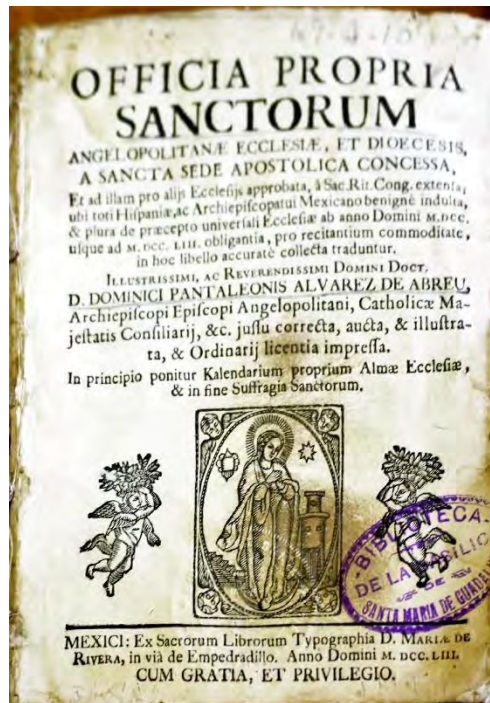 OFFICIA PROPRIA
SANCTORUM
ANGELOPOLITANÆ ECCLESIÆ, ET DIOECESIS,
A SANCTA SEDE APOSTOLICA CONCESSA,
Et ad illam pro alijs Ecclesijs approbata, à Sac. Rit. Cong. extenta,
ubi toti Hispaniæ, ac Archiepiscopatui Mexicano benignè indulta,
& plura de præcepto universali Ecclesiæ ab anno Domini M.DCC.
usque ad M. DCC. LIII. obligantia, pro recitantium commoditate,
in hoc libello accuratè collecta traduntur.
ILLUSTRISSIMI, AC REVERENDISSIMI DOMINI DOCT.
D. DOMINICI PANTALEONIS ALVAREZ DE ABREU,
Archiepiscopi Episcopi Angelopolitani, Catholicæ Ma-
jestatis Consiliarij, &c. jussu correcta, aucta, & illustra-
ta, & Ordinarij licentia impressa.
In principio ponitur Kalendarium proprium Almæ Ecclesiæ,
& in fine Suffragia Sanctorum.
BIBLIOTECA
DE LA BASILIC
DE
SANTA MARIA DE GUADAL
MEXICI: Ex Sacrorum Librorum Typographia D. MARIÆ DE
RIVERA, in viâ de Empedradillo. Anno Domini M. DCC. LIII.
CUM GRATIA, ET PRIVILEGIO.